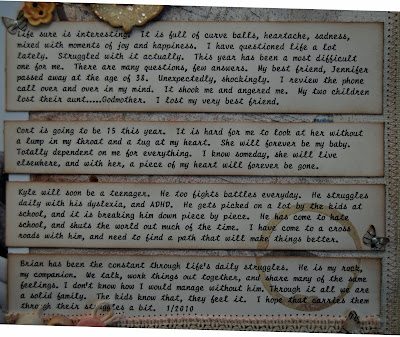 Life sure is interesting. It is full of curve balls, heartache, sadness,
mixed with moments of joy and happiness. I have questioned life a lot
lately. Struggled with it actually. This year has been a most difficult
one for me. There are many questions, few answers. My best friend, Jennifer
passed away at the age of 38. Unexpectedly, shockingly. I review the phone
call over and over in my mind. It shook me and angered me. My two children
lost their aunt.....Godmother. I lost my very best friend.
Cort is going to be 15 this year. It is hard for me to look at her without
a lump in my throat and a tug at my heart. She will forever be my baby.
Totally dependent on me for everything. I know someday, she will live
elsewhere, and with her, a piece of my heart will forever be gone.
Kyle will soon be a teenager. He too fights battles everyday. He struggles
daily with his dyslexia, and ADHD. He gets picked on a lot by the kids at
school, and it is breaking him down piece by piece. He has come to hate
school, and shuts the world out much of the time. I have come to a cross
roads with him, and need to find a path that will make things better.
Brian has been the constant through life's daily struggles. He is my rock,
my companion. We talk, work things out together, and share many of the same
feelings. I don't know how I would manage without him. Through it all we are
a solid family. The kids know that, they feel it. I hope that carries them
through their struggles a bit. 1/2010